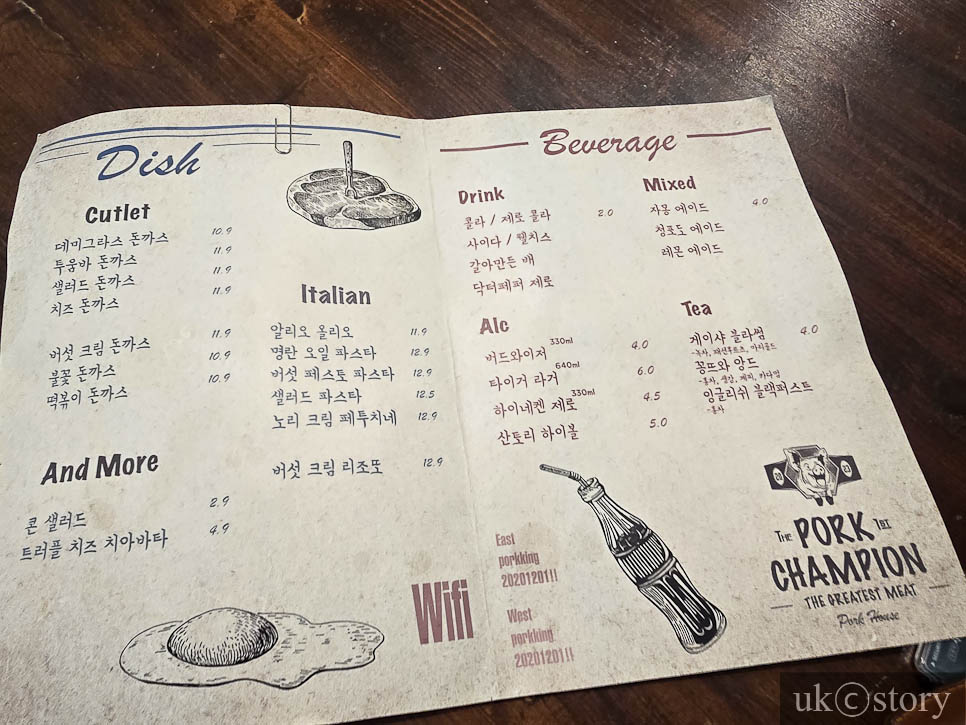 Dish
Cutlet
데미그라스 돈까스 10.9
투움바 돈까스 11.9
샐러드 돈까스 11.9
치즈 돈까스 11.9
버섯 크림 돈까스 11.9
불꽃 돈까스 10.9
떡볶이 돈까스 10.9
And More
콘 샐러드 2.9
트러플 치즈 치아바타 4.9
Italian
알리오 올리오 11.9
명란 오일 파스타 12.9
버섯 페스토 파스타 12.9
샐러드 파스타 12.5
노리 크림 페투치네 12.9
버섯 크림 리조또 12.9
Wifi
East
porkking
20201201!!
West
porkking
20201201!!
Beverage
Drink
콜라 / 제로 콜라 2.0
사이다 / 웰치스
갈아만든 배
닥터페퍼 제로
Alc
버드와이저 330ml 4.0
타이거 라거 640ml 6.0
하이네켄 제로 330ml 4.5
산토리 하이볼 5.0
Mixed
자몽 에이드 4.0
청포도 에이드
레몬 에이드
Tea
게이샤 블라썸 4.0
-녹차, 패션후르츠, 마리골드
꽁뜨와 앙드
-홍차, 생강, 계피, 카다멈
잉글리쉬 블랙퍼스트
-홍차
20 23
THE PORK 1ST
CHAMPION
THE GREATEST MEAT
Pork House
uk©story